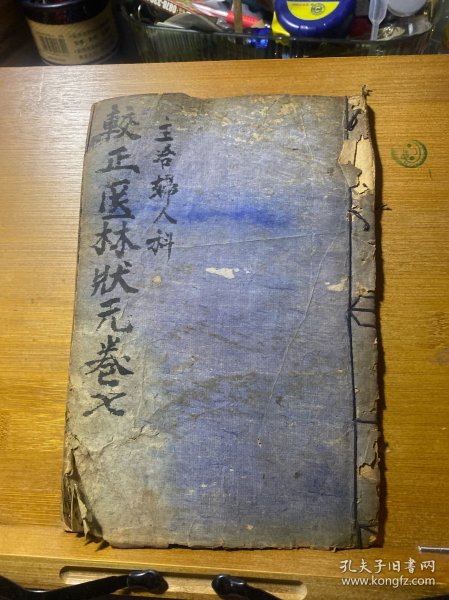 較正医林狀元卷七
主治婦人科
孔夫子旧书网
www.kongfz.com